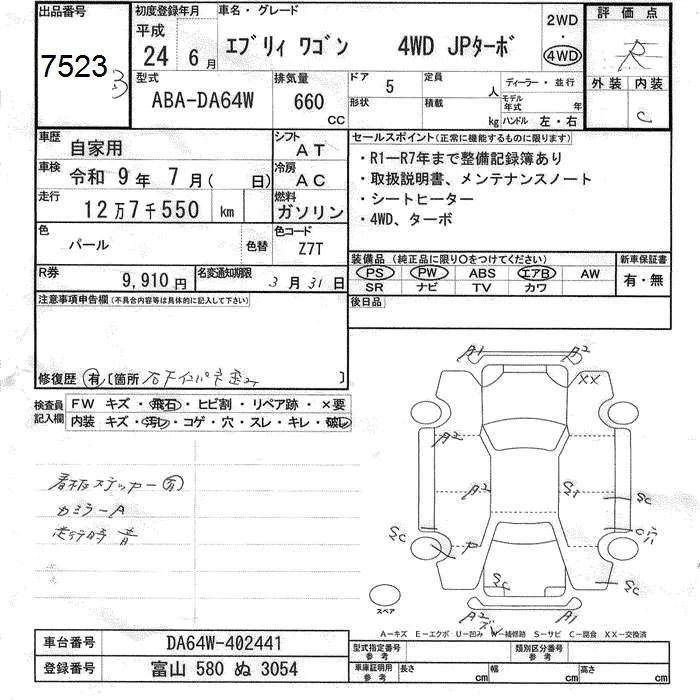 出品番号
7523
初度登録年月
平成
24 6月
車名・グレード
エブリィ ワゴン 4WD JPターボ
2WD
・
4WD
評価点
R
型式
ABA-DA64W
排気量
660
CC
ドア 5
形状
定員
人
積載
kg
ディーラー・並行
モデル年式 年
ハンドル 左・右
外装 内装
C
車歴
自家用
シフト
AT
車検 令和 9年 7月( 日)
冷房
AC
走行
12万7千550 km
燃料
ガソリン
色
パール
色替
色コード
Z7T
R券 9,910円
名変通知期限 3月31日
セールスポイント(正常に機能するものに限ります)
・R1ーR7年まで整備記録簿あり
・取扱説明書、メンテナンスノート
・シートヒーター
・4WD、ターボ
装備品(純正品に限り〇をつけてください)
PS PW ABS エアB AW
SR ナビ TV カワ
新車保証書
有・無
後日品
注意事項申告欄(不具合内容等は具体的に記入して下さい)
修復歴 有 [箇所 ]
検査員記入欄
FW キズ・飛石・ヒビ割・リペア跡・×要
内装 キズ・汚レ・コゲ・穴・スレ・キレ・破レ
看板ステッカー有
カミラーA
走行時 音
A1 A2
XX
A2
A2 S1 SC
SC
SC SC
A2 A1
スペア
A－キズ E－エクボ U－凹み W－補修跡 S－サビ C－腐食 XX－交換済
車台番号 DA64W-402441
登録番号 富山 580 ぬ 3054
型式指定番号
参考
類別区分番号
参考
車庫証明用
参考
長さ cm 幅 cm 高さ cm